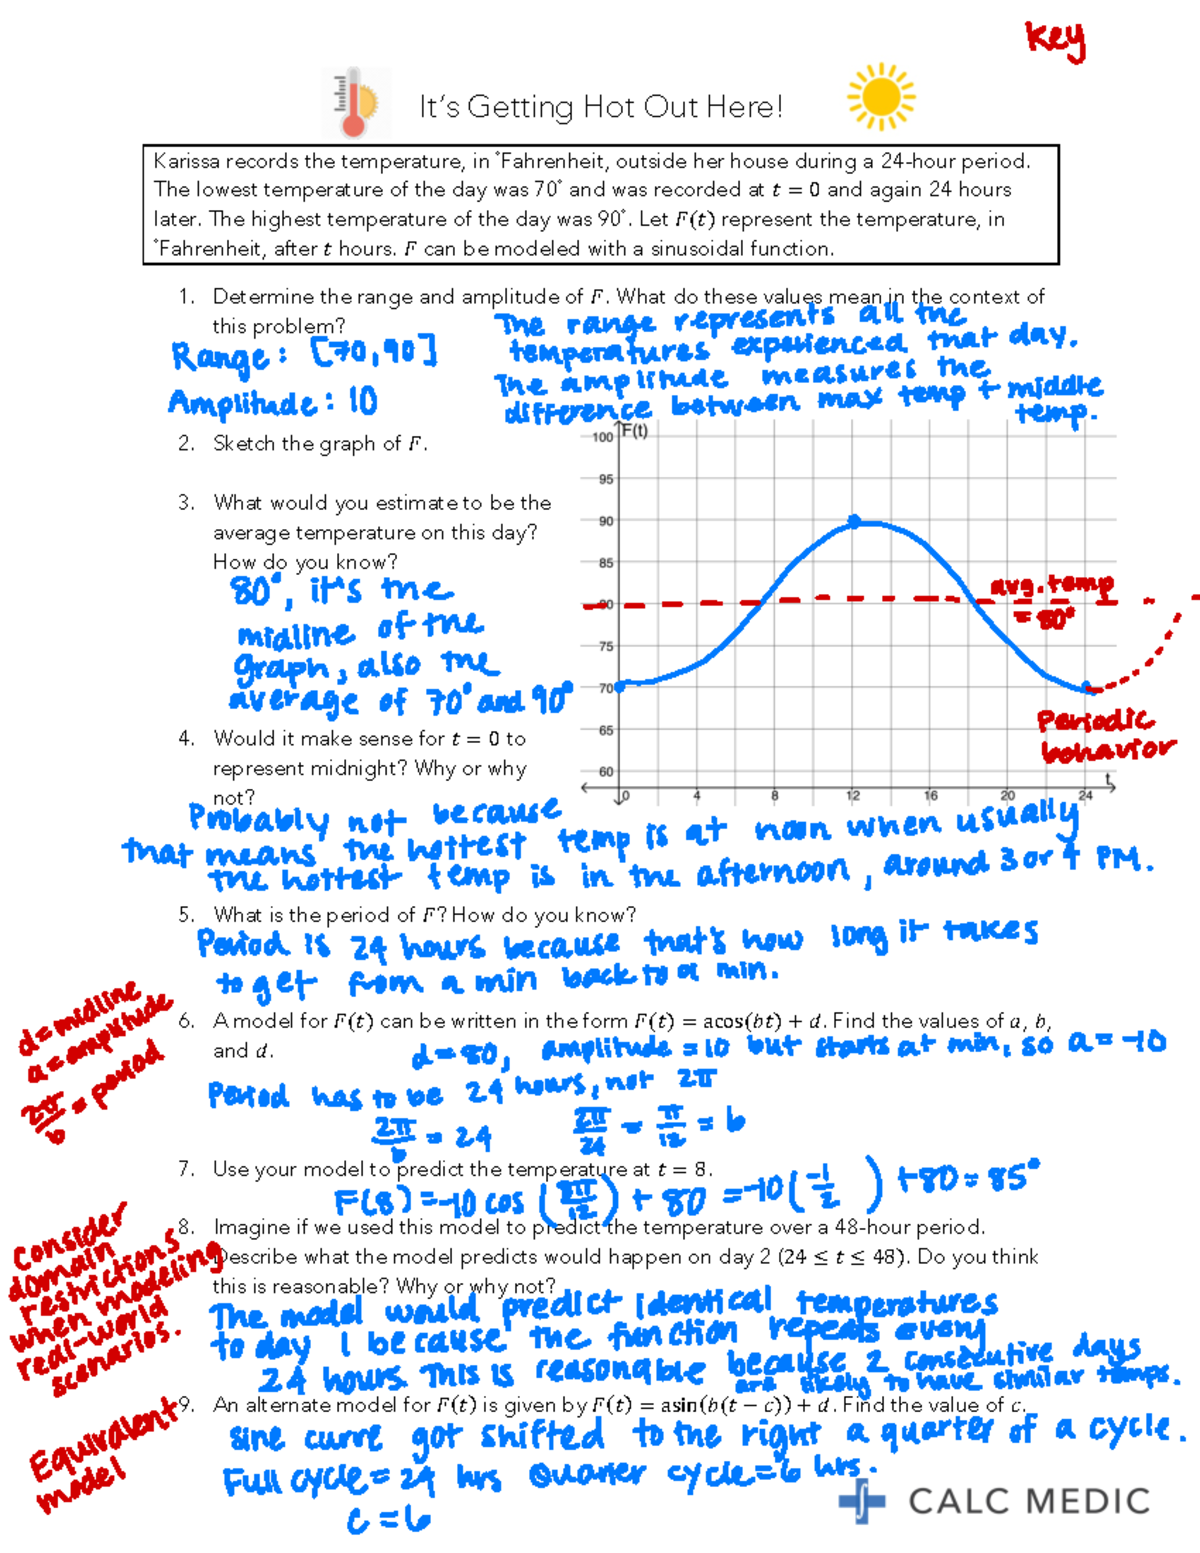 Key
It's Getting Hot Out Here!
Karissa records the temperature, in °Fahrenheit, outside her house during a 24-hour period.
The lowest temperature of the day was 70° and was recorded at t = 0 and again 24 hours
later. The highest temperature of the day was 90°. Let F(t) represent the temperature, in
°Fahrenheit, after t hours. F can be modeled with a sinusoidal function.
1. Determine the range and amplitude of F. What do these values mean in the context of
this problem?
Range: [70,90]
Amplitude: 10
The range represents all the
temperatures experienced that day.
The amplitude measures the
difference between max temp + middle
temp.
2. Sketch the graph of F.
3. What would you estimate to be the
average temperature on this day?
How do you know?
80°, it's the
midline of the
graph, also the
average of 70° and 90°
F(t)
100
95
90
85
80
75
70
65
60
0 4 8 12 16 20 24
t
avg. temp
= 80°
Periodic
behavior
4. Would it make sense for t = 0 to
represent midnight? Why or why
not?
Probably not because
that means the hottest temp is at noon when usually
the hottest temp is in the afternoon, around 3 or 4 PM.
5. What is the period of F? How do you know?
Period is 24 hours because that's how long it takes
to get from a min back to a min.
d = midline
a = amplitude
2π/b = period
6. A model for F(t) can be written in the form F(t) = acos(bt) + d. Find the values of a, b,
and d.
d=80, amplitude = 10 but starts at min, so a = -10
Period has to be 24 hours, not 2π
2π/b = 24 2π/24 = π/12 = b
7. Use your model to predict the temperature at t = 8.
F(8) = -10 cos (8π/12) + 80 = -10(-1/2) + 80 = 85°
8. Imagine if we used this model to predict the temperature over a 48-hour period.
Describe what the model predicts would happen on day 2 (24 ≤ t ≤ 48). Do you think
this is reasonable? Why or why not?
Consider
domain
restrictions
when modeling
real-world
scenarios.
The model would predict identical temperatures
to day 1 because the function repeats every
24 hours. This is reasonable because 2 consecutive days
are likely to have similar temps.
9. An alternate model for F(t) is given by F(t) = asin(b(t − c)) + d. Find the value of c.
Equivalent
model
sine curve got shifted to the right a quarter of a cycle.
Full cycle = 24 hrs Quarter cycle = 6 hrs.
c = 6
CALC MEDIC